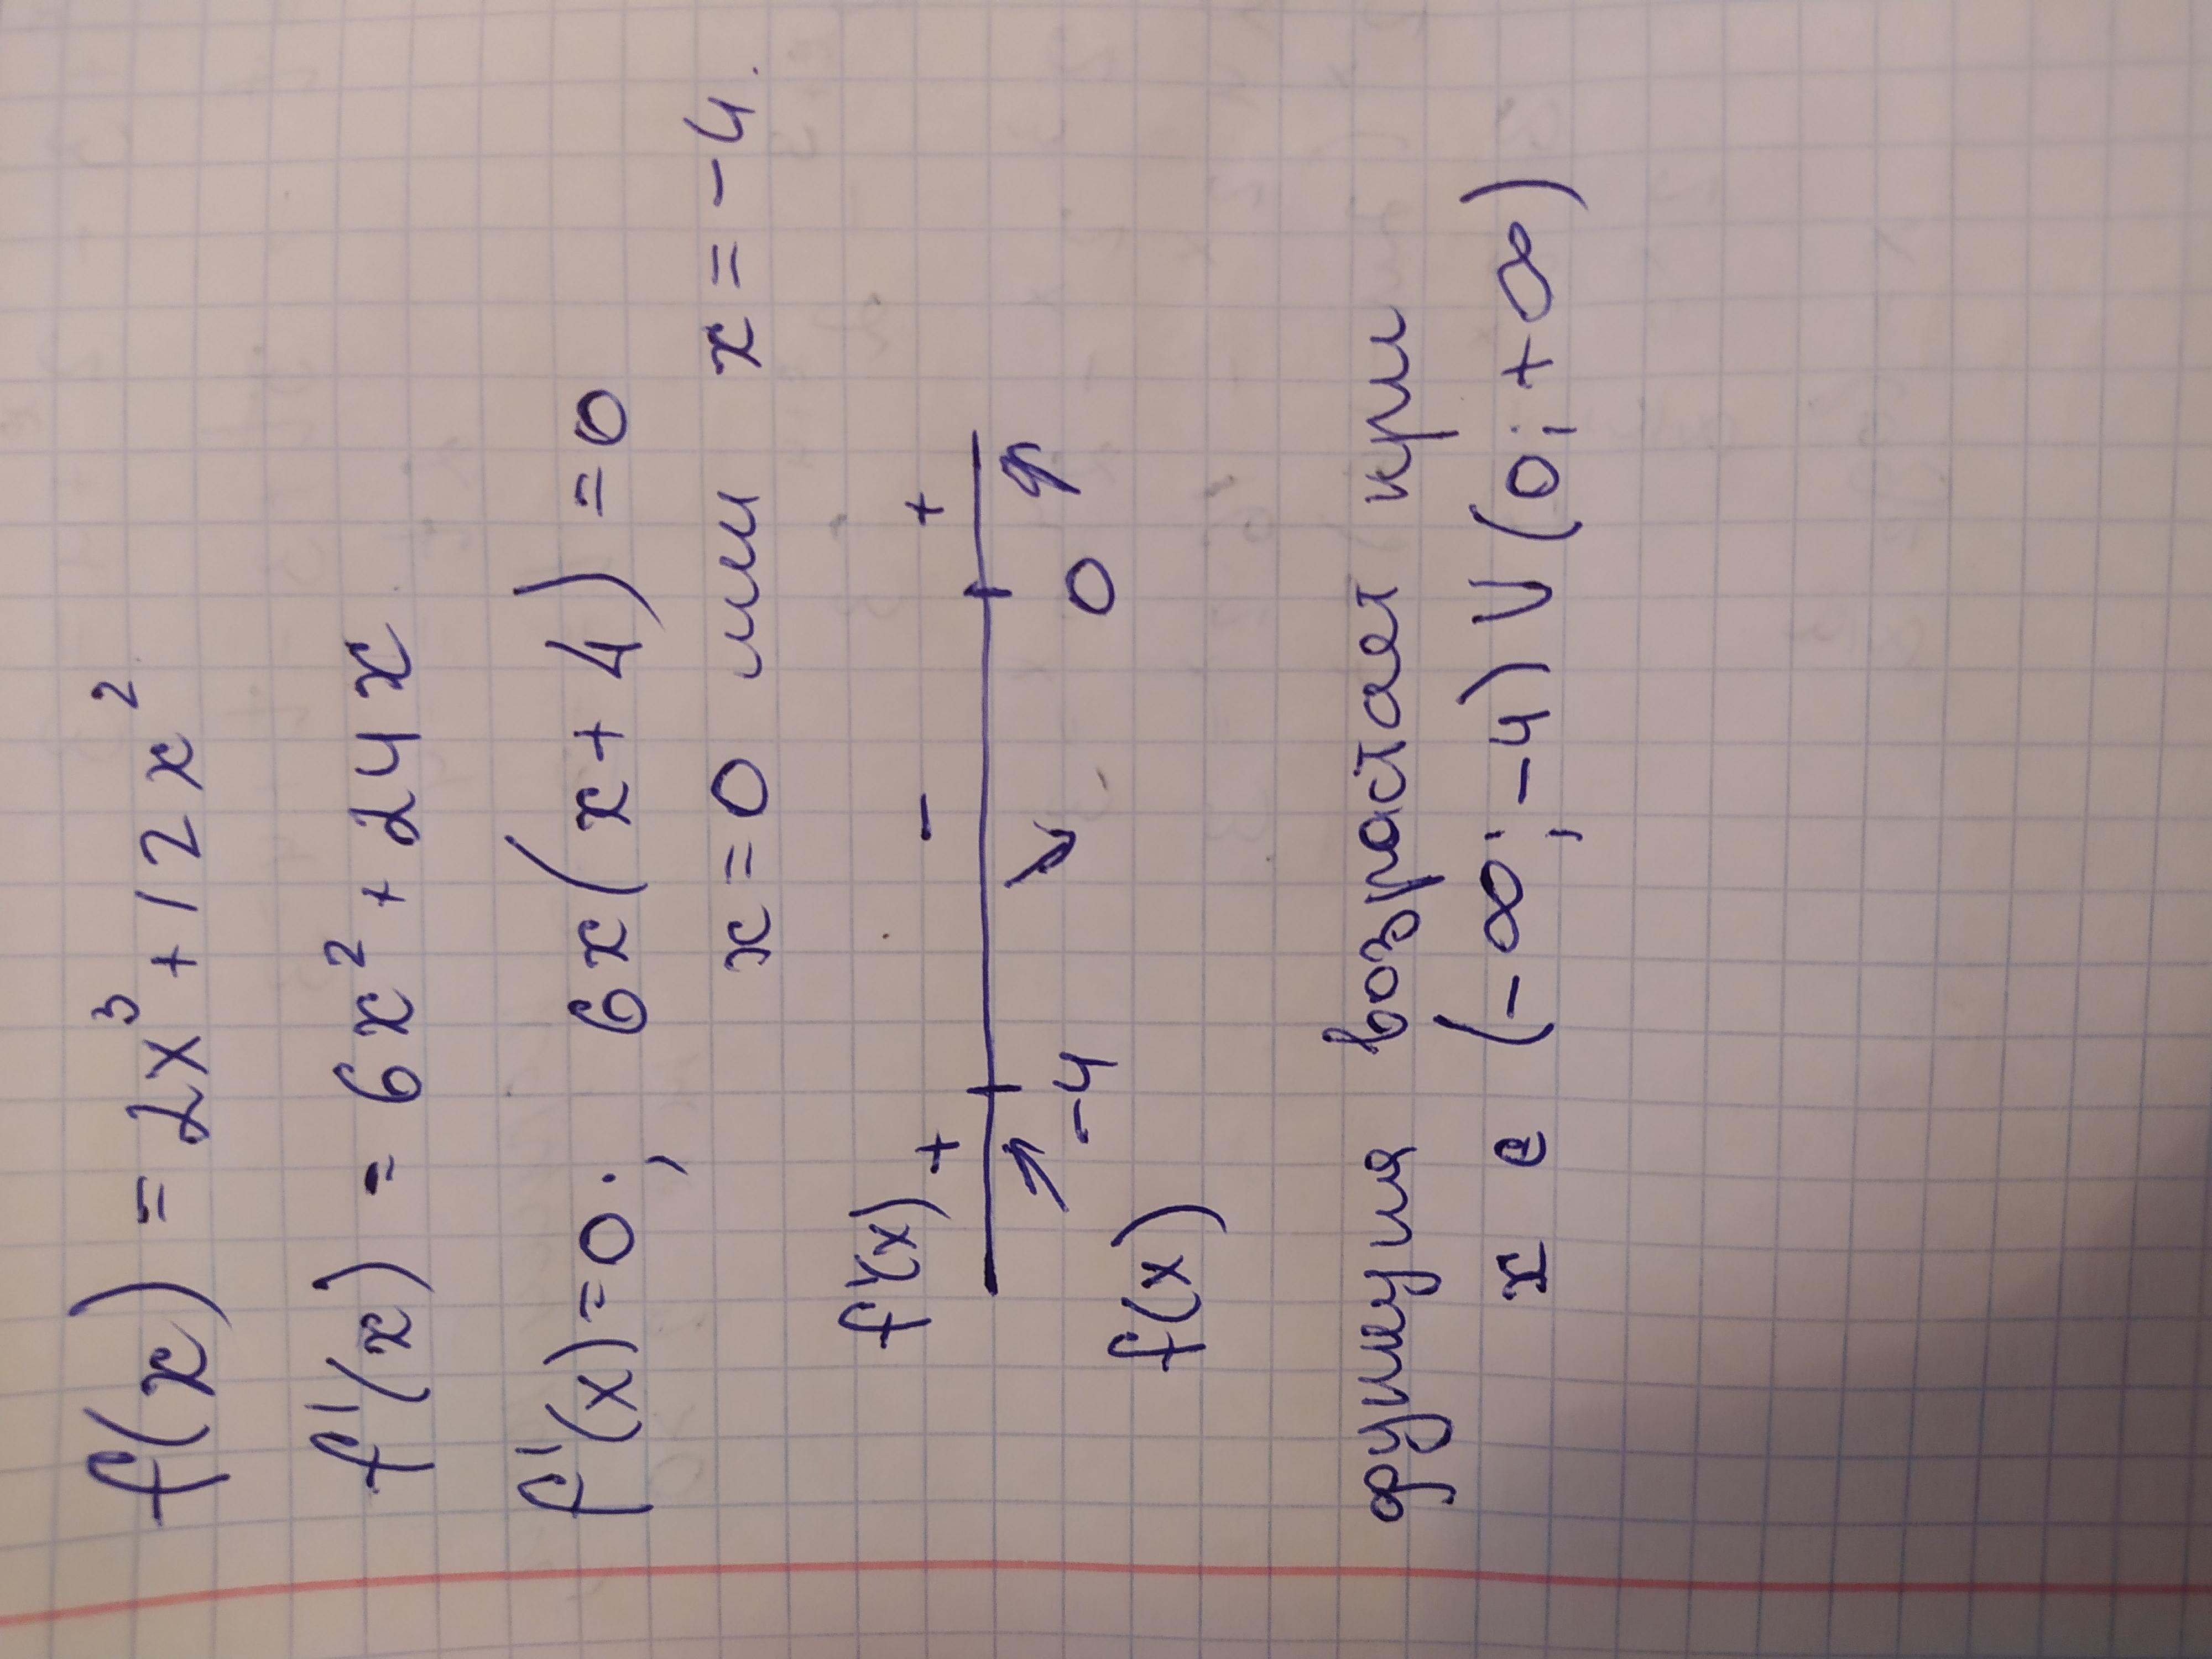 f(x) = 2x³ + 12x²
f'(x) = 6x² + 24x
f'(x) = 0; 6x(x + 4) = 0
x = 0 или x = -4.
f'(x) + - +
-4 0
f(x)
функция возрастает при
x ∈ (-∞; -4) ∪ (0; +∞)